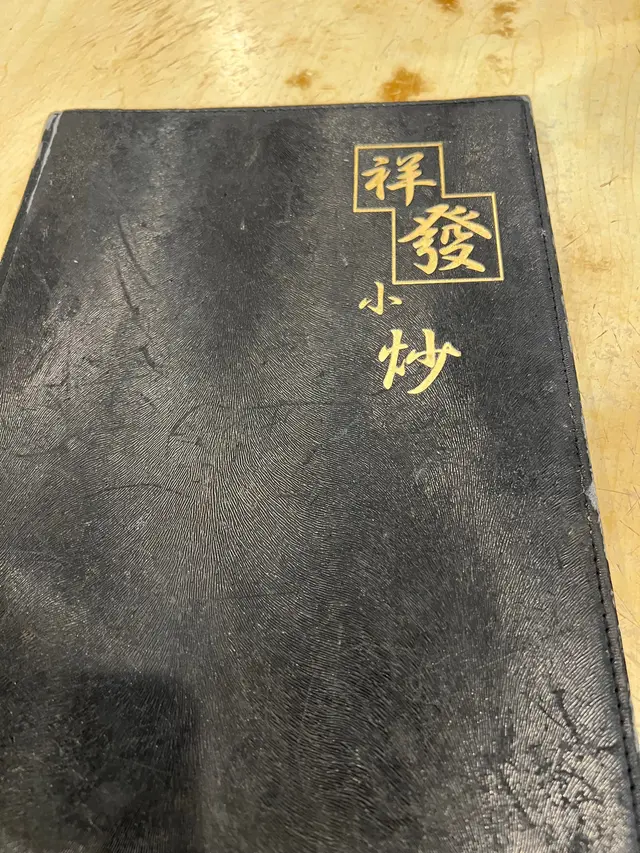 祥
發
小
炒